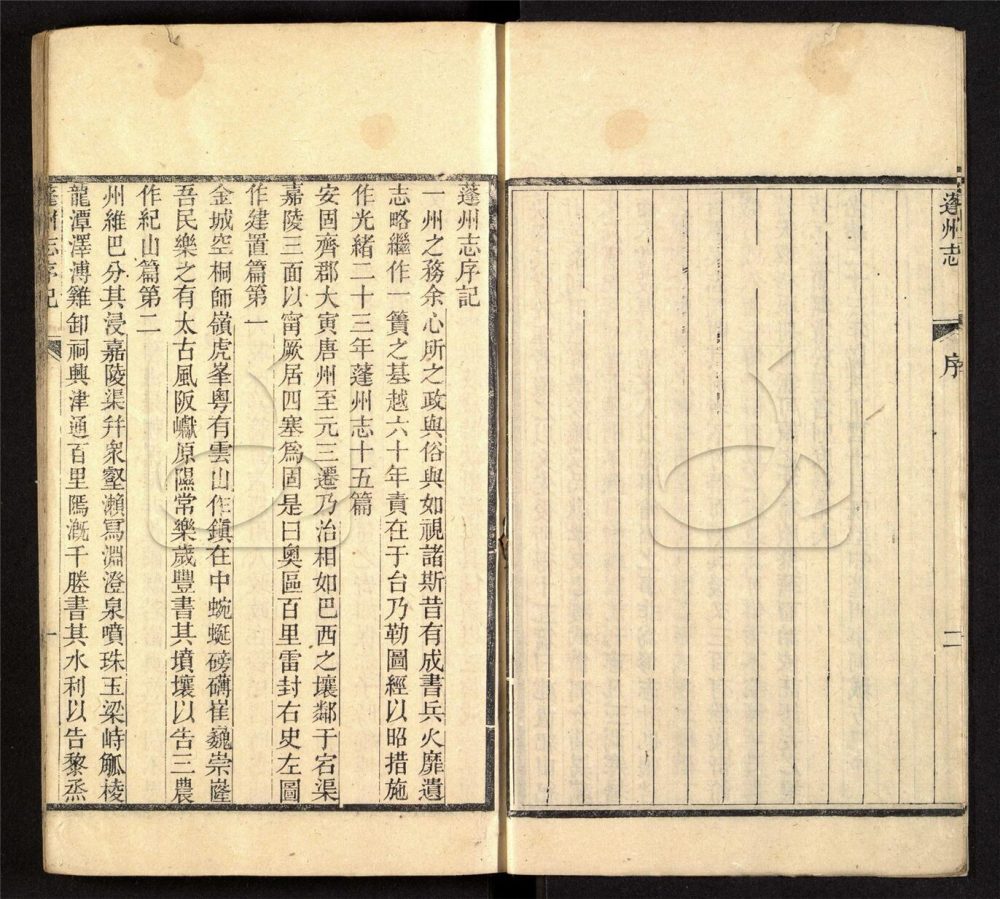 蓬州志
序
二
蓬州志序記
一州之務余心所之政與俗與如視諸斯昔有成書兵火靡遺
志略繼作一簣之基越六十年責在于台乃勒圖經以昭措施
作光緒二十三年蓬州志十五篇
安固齊郡大寅唐州至元三遷乃治相如巴西之壤鄰于宕渠
嘉陵三面以甯厥居四塞爲固是曰奧區百里雷封右史左圖
作建置篇第一
金城空桐師嶺虎峯粵有雲山作鎮在中蜿蜒磅礴崔巍崇隆
吾民樂之有太古風阪巘原隰常樂歲豐書其墳壤以告三農
作紀山篇第二
州維巴分其浸嘉陵渠幷衆壑瀨寫淵澄泉噴珠玉梁峙觚棱
龍潭澤溥雞卸祠興津通百里隝漑千塍書其水利以告黎烝
蓬州志序記
一